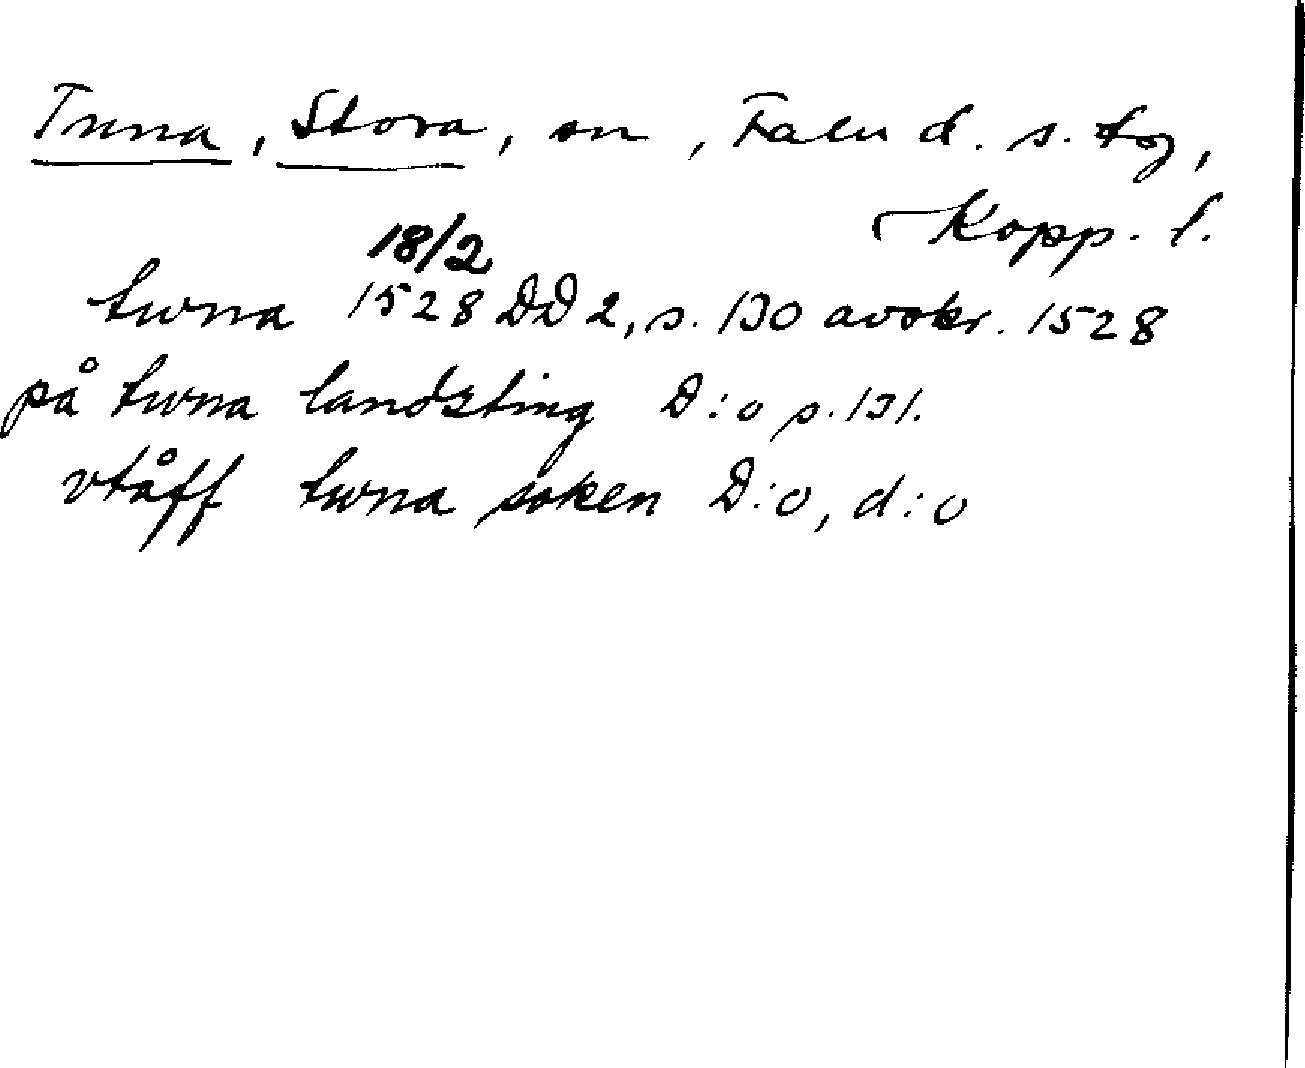 Tuna, Stora, sn, Falu d. s. tg,
Kopp. l.
18/2
twna 1528 DD 2, s. 130 avskr. 1528
på twna landzting D:o s. 131.
vtåff twna soken D:o, d:o